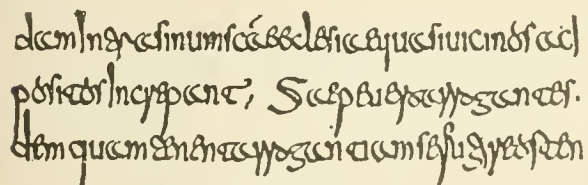 dam Intra sinum scae eclesiae quasi uicinos ac I
positos Increpant, Saepe uero arrogantes.
dem quam tenent arrogantiam se fugere osten